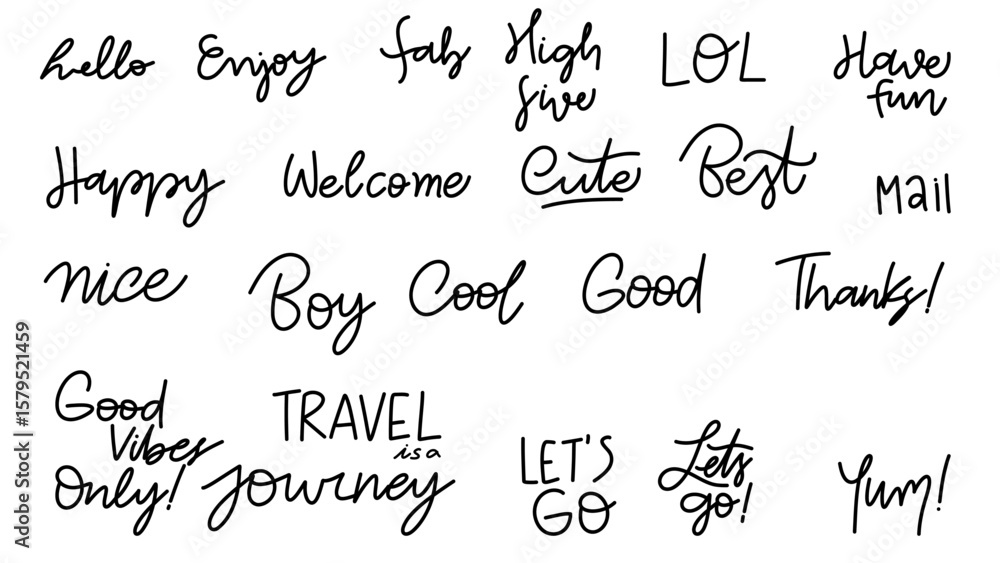 hello Enjoy fab High five LOL Have fun
Happy Welcome Cute Best Mail
nice Boy Cool Good Thanks!
Good Vibes Only! TRAVEL is a journey LET'S GO Lets go! Yum!
Adobe Stock | #1579521459